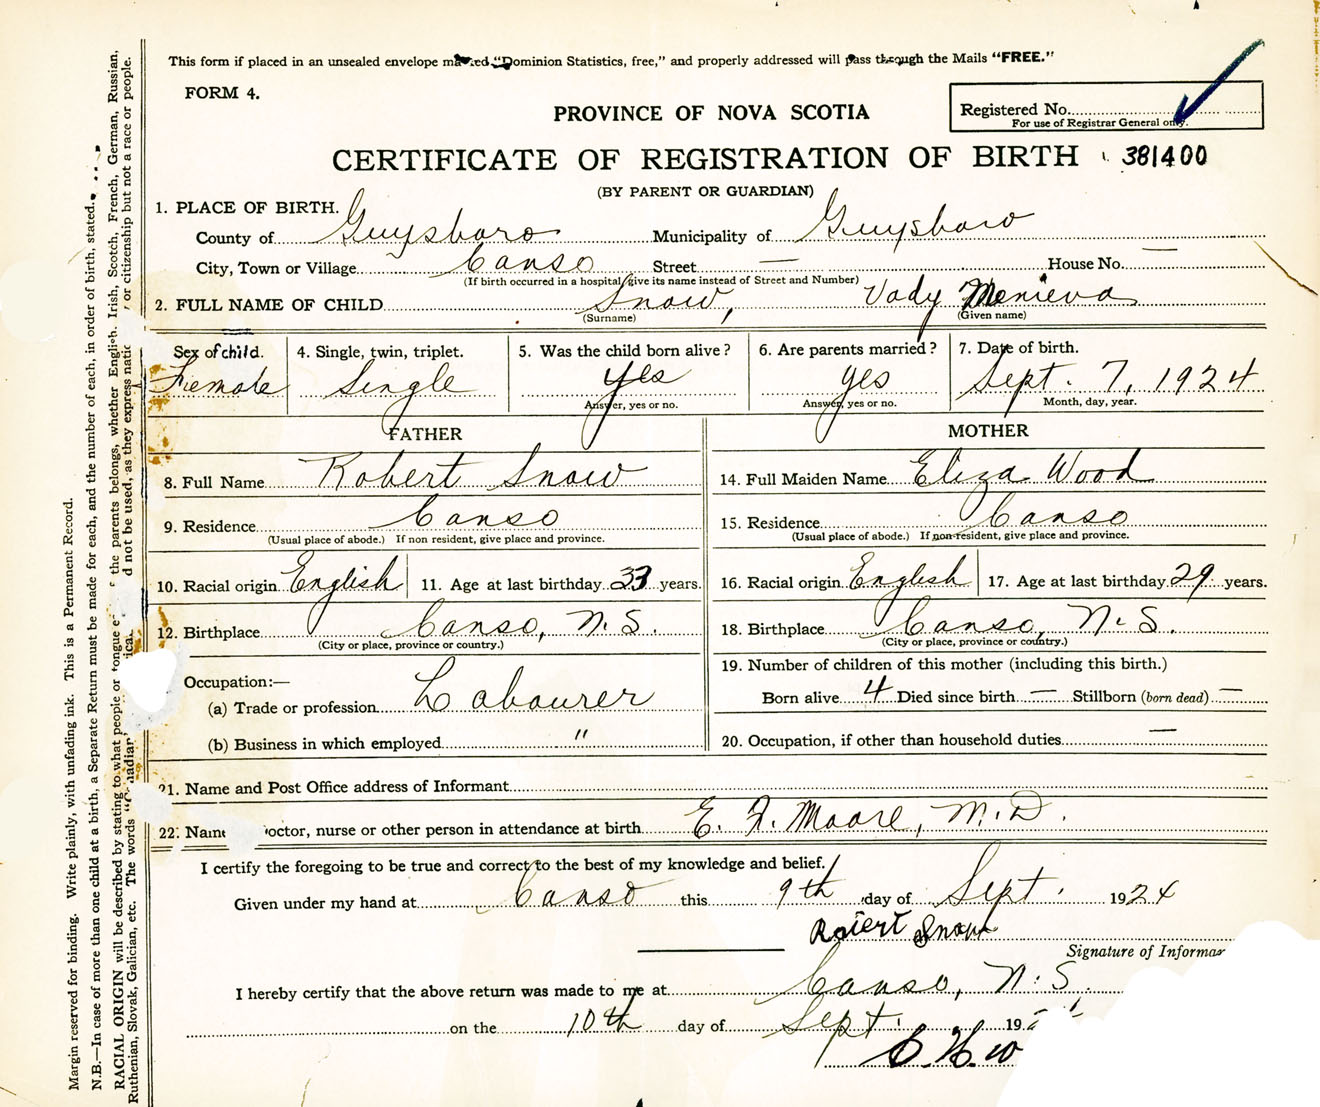 This form if placed in an unsealed envelope marked "Dominion Statistics, free," and properly addressed will pass through the Mails "FREE."
FORM 4.
PROVINCE OF NOVA SCOTIA
Registered No.
For use of Registrar General only.
CERTIFICATE OF REGISTRATION OF BIRTH 381400
(BY PARENT OR GUARDIAN)
1. PLACE OF BIRTH.
County of Guysboro Municipality of Guysboro
City, Town or Village Canso Street — House No. —
(If birth occurred in a hospital give its name instead of Street and Number)
2. FULL NAME OF CHILD Snow, Vady Menieva
(Surname) (Given name)
Sex of child. 4. Single, twin, triplet. 5. Was the child born alive? 6. Are parents married? 7. Date of birth.
Female Single Yes Yes Sept. 7, 1924
Answer, yes or no. Answer, yes or no. Month, day, year.
FATHER MOTHER
8. Full Name Robert Snow 14. Full Maiden Name Eliza Wood
9. Residence Canso 15. Residence Canso
(Usual place of abode.) If non resident, give place and province. (Usual place of abode.) If non-resident, give place and province.
10. Racial origin English 11. Age at last birthday 33 years. 16. Racial origin English 17. Age at last birthday 29 years.
12. Birthplace Canso, N.S. 18. Birthplace Canso, N.S.
(City or place, province or country.) (City or place, province or country.)
19. Number of children of this mother (including this birth.)
Occupation:—
(a) Trade or profession Labourer Born alive 4 Died since birth — Stillborn (born dead) —
(b) Business in which employed " 20. Occupation, if other than household duties —
21. Name and Post Office address of Informant
22. Name doctor, nurse or other person in attendance at birth E. F. Moore, M.D.
I certify the foregoing to be true and correct to the best of my knowledge and belief.
Given under my hand at Canso this 9th day of Sept. 1924
Robert Snow
Signature of Informa
I hereby certify that the above return was made to me at Canso, N.S.
on the 10th day of Sept. 19
C. H.
Margin reserved for binding. Write plainly, with unfading ink. This is a Permanent Record.
N.B.—In case of more than one child at a birth, a Separate Return must be made for each, and the number of each, in order of birth, stated.
RACIAL ORIGIN will be described by stating to what people or tongue the parents belongs, whether English, Irish, Scotch, French, German, Russian,
Ruthenian, Slovak, Galician, etc. The words "Canadian, d not be used, as they express or citizenship but not a race or people.